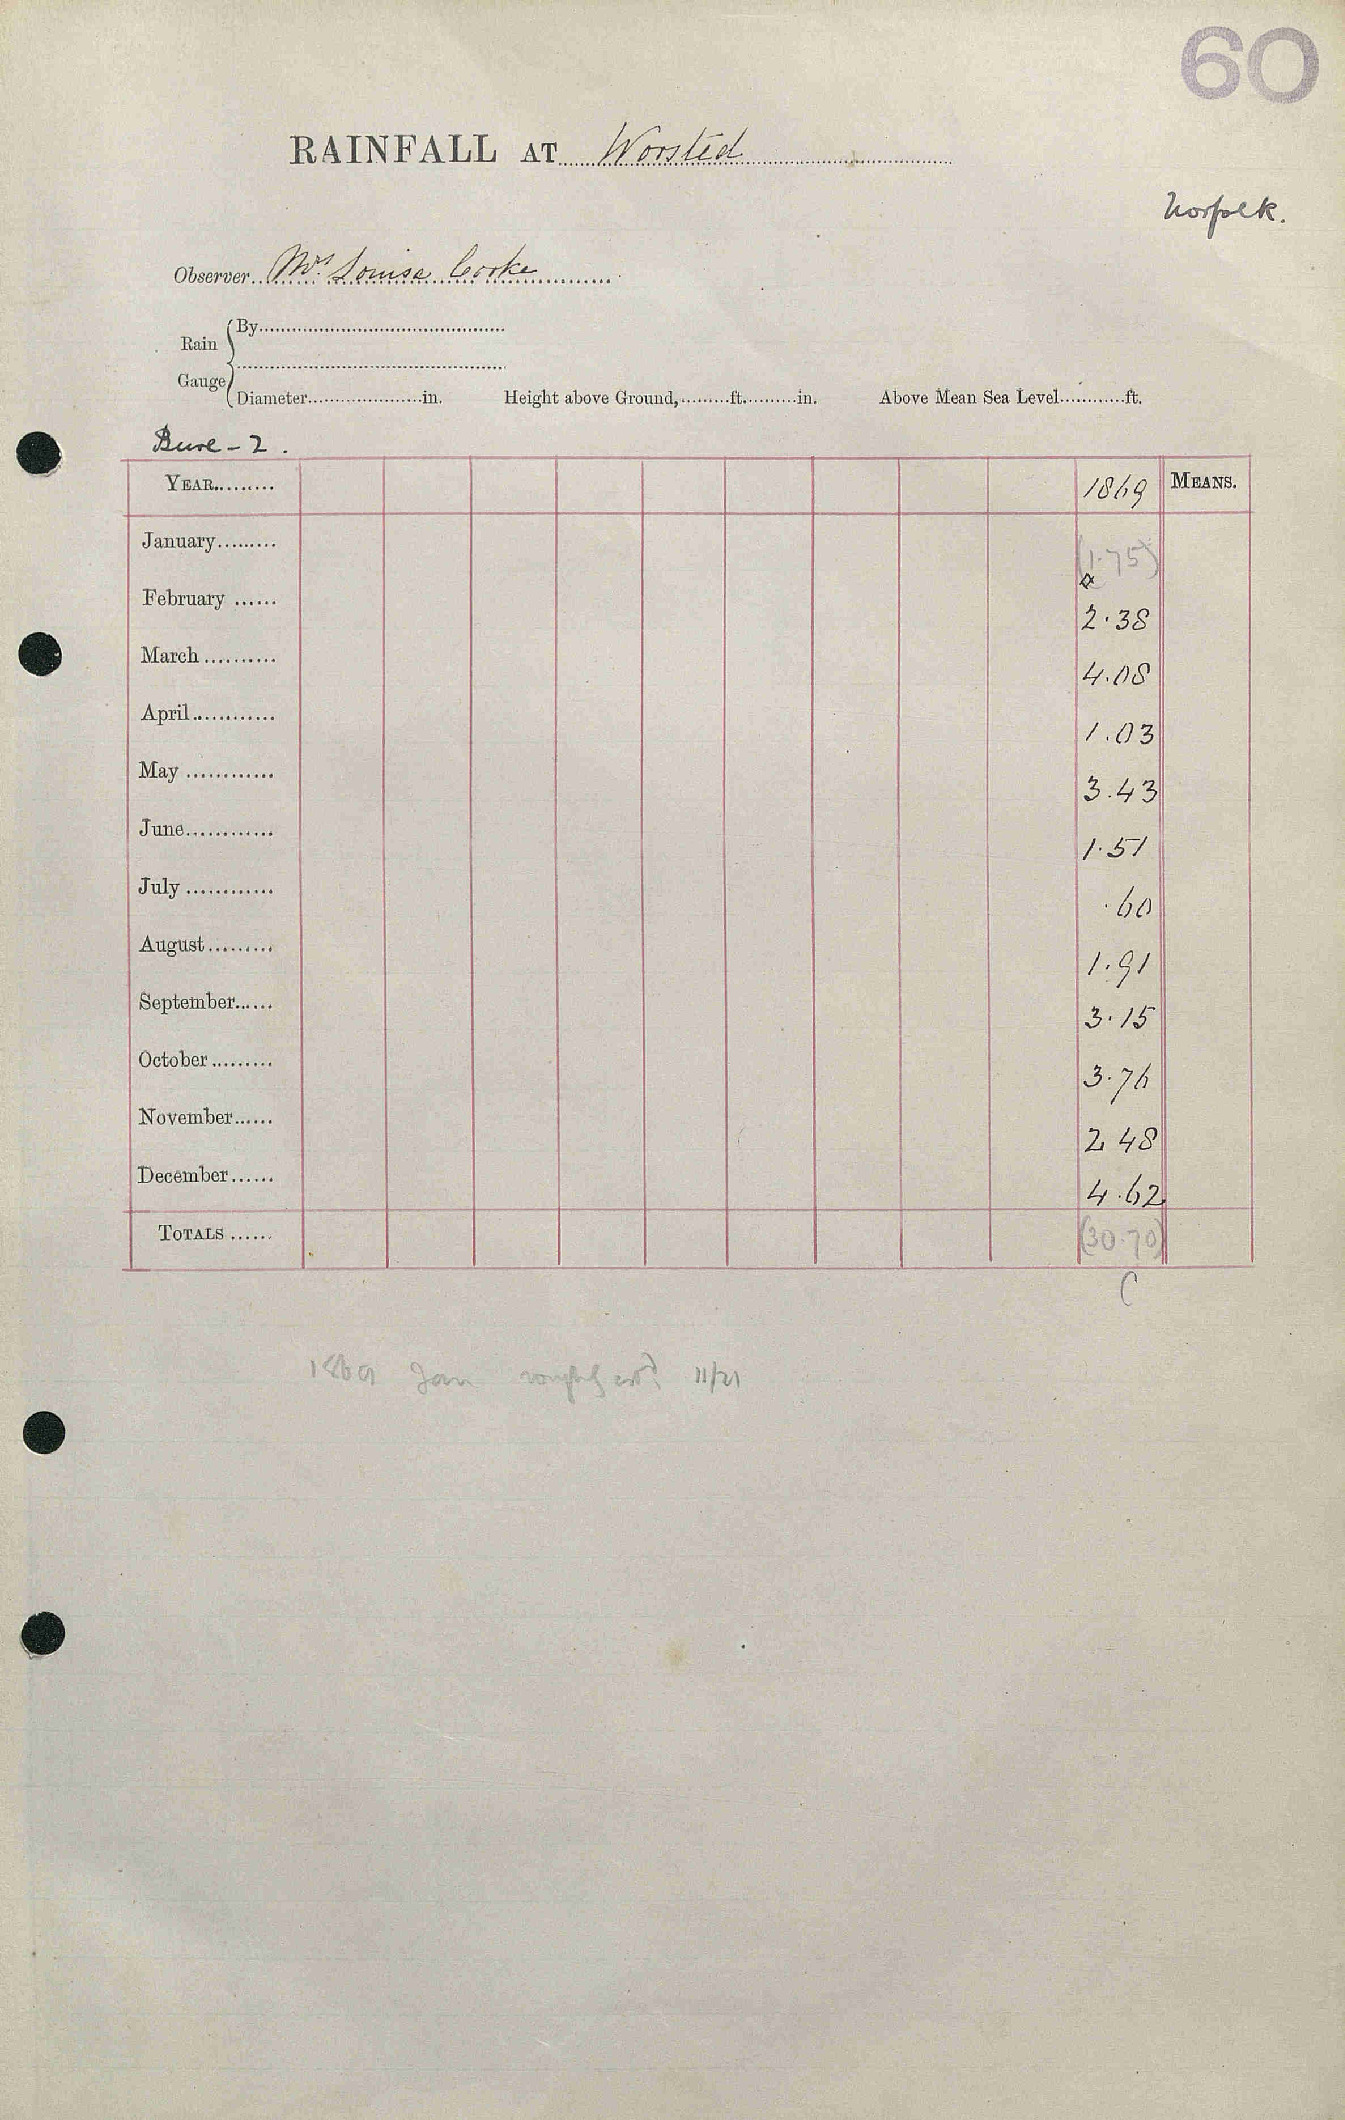 60
RAINFALL AT Worsted
Norfolk.
Observer Mrs. Louisa Cooke
Rain Gauge
By
Diameter in. Height above Ground, ft. in. Above Mean Sea Level ft.
Bure - 2.
YEAR 1869 MEANS.
January (1.75)
February 2.38
March 4.08
April 1.03
May 3.43
June 1.51
July .60
August 1.91
September 3.15
October 3.76
November 2 48
December 4.62
TOTALS (30.70)
C
1869 Jan roughly estd. 11/21